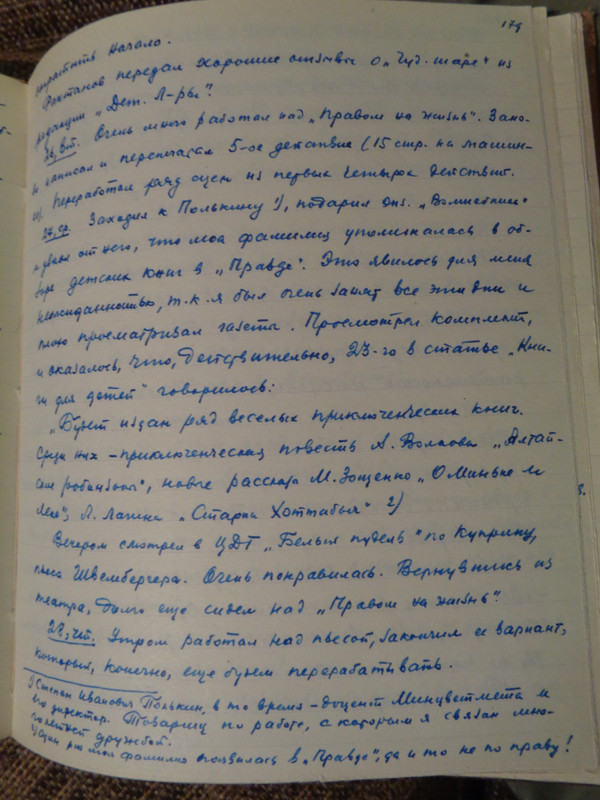 179
отработать начало.
Фактанов передал хорошие отзывы о „Чуд. шаре" из
редакции „Дет. Л-ры".
26, вт. Очень много работал над „Правом на жизнь". Зано-
во написал и перепечатал 5-ое действие (15 стр. на машин-
ке). Переработал ряд сцен из первых четырех действий.
27, ср. Заходил к Полькину 1), подарил экз. „Волшебника"
и узнал от него, что моя фамилия упоминалась в об-
зоре детских книг в „Правде". Это явилось для меня
неожиданностью, т.к. я был очень занят все эти дни и
плохо просматривал газеты. Просмотрел комплект,
и оказалось, что, действительно, 23-го в статье „Кни-
ги для детей" говорилось:
„Будет издан ряд веселых приключенческих книг.
Среди них – приключенческая повесть А. Волкова „Алтай-
ские робинзоны", новые рассказы М. Зощенко „О Миньке и
Леле", Л. Лагина „Старик Хоттабыч" 2)
Вечером смотрел в ЦДТ „Белый пудель" по Куприну,
пьеса Швембергера. Очень понравилась. Вернувшись из
театра, долго еще сидел над „Правом на жизнь".
28, чт. Утром работал над пьесой, закончил ее вариант,
который, конечно, еще будем перерабатывать.
1) Степан Иванович Полькин, в то время – доцент Минцветмета и
его директор. Товарищ по работе, с которым я связан мно-
голетней дружбой.
2) Один раз моя фамилия появилась в „Правде", да и то не по праву!